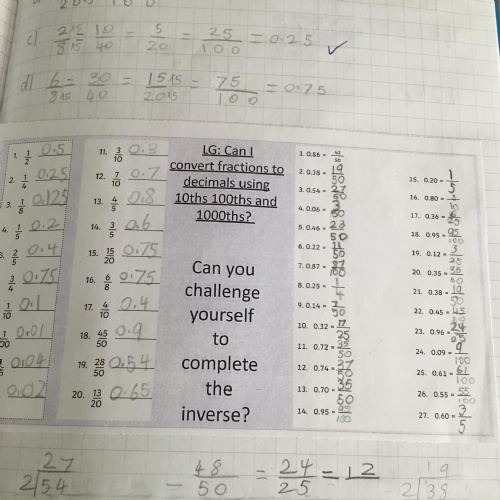 c) 2/8 = 10/40 = 5/20 = 25/100 = 0.25 ✓
d) 6/8 = 30/40 = 15/20 = 75/100 = 0.75
1. 1/2 0.5
2. 1/4 0.25
3. 1/8 0.125
1/5 0.2
2/5 0.4
3/4 0.75
1/10 0.1
1/100 0.01
0.04
0.02
11. 3/10 0.3
12. 7/10 0.7
13. 4/5 0.8
14. 3/5 0.6
15. 15/20 0.75
16. 6/8 0.75
17. 4/10 0.4
18. 45/50 0.9
19. 28/50 0.54
20. 13/20 0.65
LG: Can I
convert fractions to
decimals using
10ths 100ths and
1000ths?
Can you
challenge
yourself
to
complete
the
inverse?
1. 0.86 = 43/50
2. 0.38 = 19/50
3. 0.54 = 27/50
4. 0.06 = 3/50
5. 0.46 = 23/50
6. 0.22 = 11/50
7. 0.87 = 87/100
8. 0.25 = 1/4
9. 0.14 = 7/50
10. 0.32 = 17/25
11. 0.72 = 35/50
12. 0.74 = 27/50
13. 0.70 = 35/50
14. 0.95 = 95/100
15. 0.20 = 1/5
16. 0.80 =
17. 0.36 =
18. 0.95 = 95/100
19. 0.12 = 3/25
20. 0.35 = 35/50
21. 0.38 = 19/50
22. 0.45 = 45/50
23. 0.96 = 24/25
24. 0.09 = 9/100
25. 0.61 = 61/100
26. 0.55 = 55/100
27. 0.60 = 3/5
27
2 54
48/50 = 24/25 = 12
19
2 38